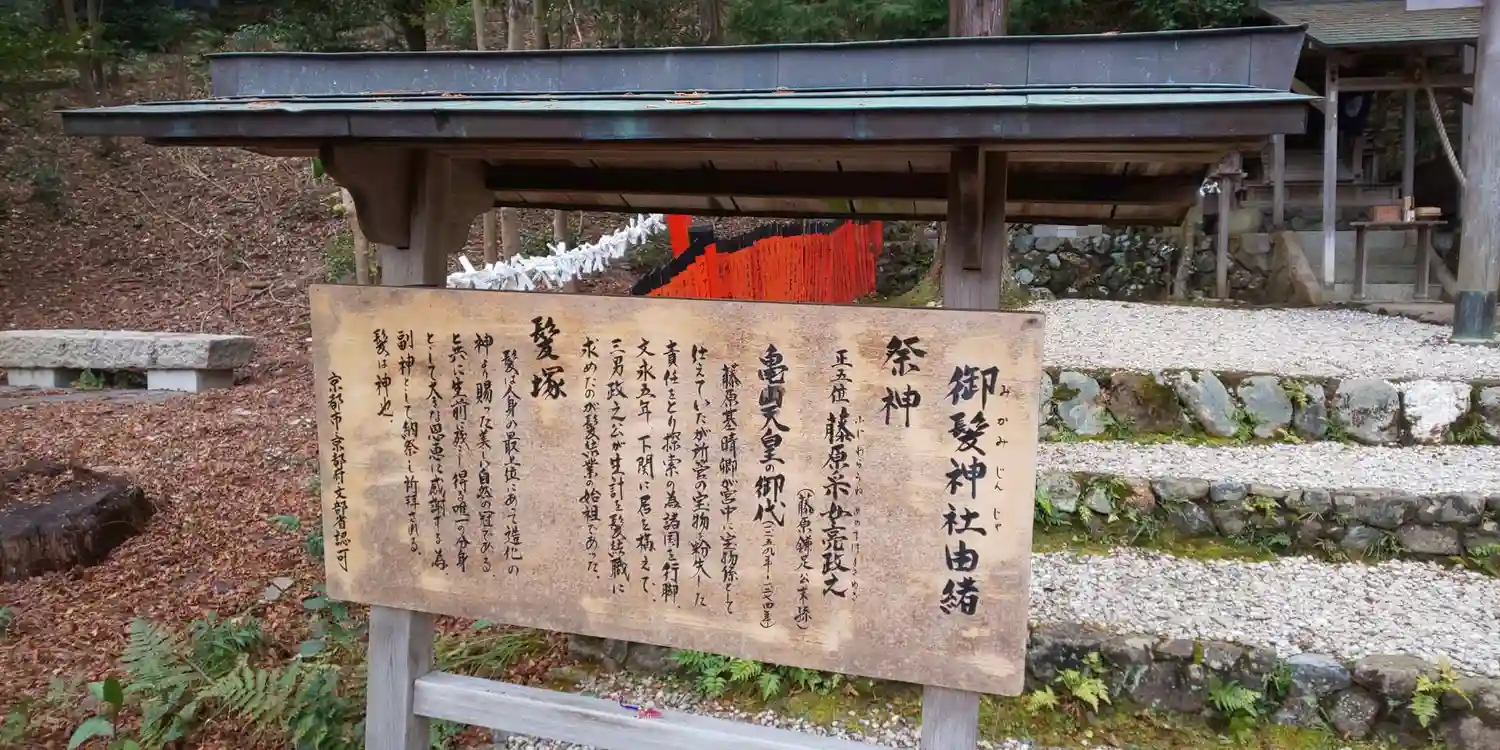 御髪神社由緒
みかみじんじゃ
祭神
正三位 藤原采女亮政之
ふじわらうねめのすけまさゆき
(藤原鎌足公末孫)
亀山天皇の御代(一二五九年~一二七四年)
藤原基晴卿が宮中に宝物係として
仕えていたが所管の宝物を紛失した
責任をとり探索の為諸国を行脚、
文永五年 下関に居を構えて、
三男政之公が生計を髪結職に
求めたのが髪結業の始祖であった。
髪塚
髪は人身の最上位にあって造化の
神より賜った美しい自然の冠である
と共に生前残し得る唯一の分身
として大きな恩恵に感謝する為、
副神として納祭し祈拝される。
髪は神也。
京都市・京都府 文部省認可